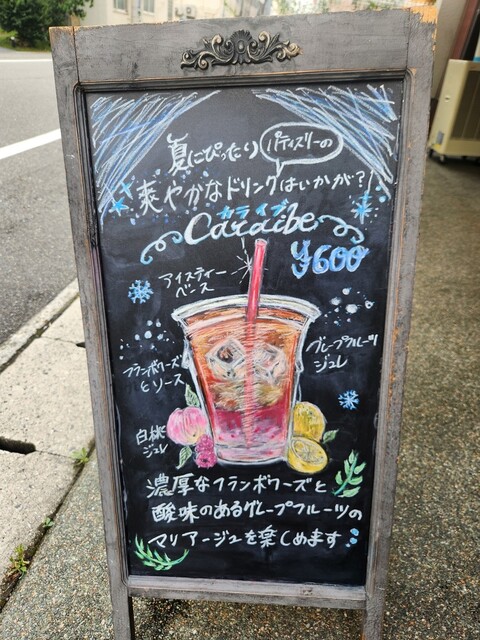 夏にぴったり
パティスリーの
爽やかなドリンクはいかが?
カライブ
Caraibe
¥600
アイスティー
ベース
グレープフルーツ
ジュレ
フランボワーズ
ヒソース
白桃
ジュレ
濃厚なフランボワーズと
酸味のあるグレープフルーツの
マリアージュを楽しめます